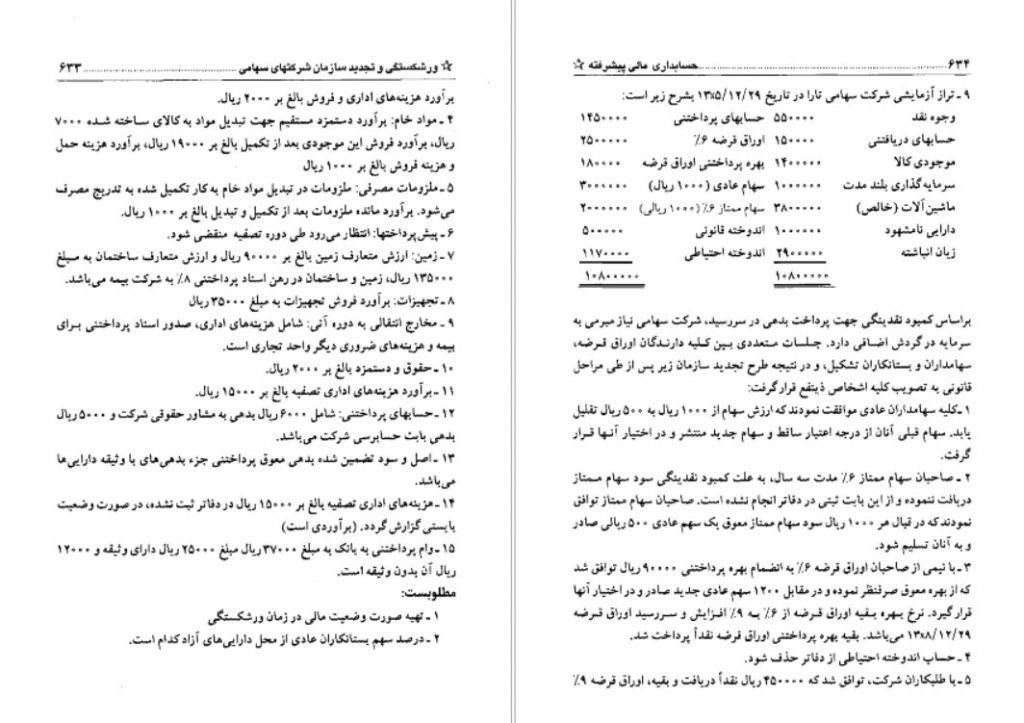 ☆ ورشکستگی و تجدید سازمان شرکتهای سهامی ........................................ ۶۳۳
برآورد هزینه‌های اداری و فروش بالغ بر ۲۰۰۰ ریال.
۴ ـ مواد خام: برآورد دستمزد مستقیم جهت تبدیل مواد به کالای ساخته شده ۷۰۰۰
ریال، برآورد فروش این موجودی بعد از تکمیل بالغ بر ۱۹۰۰۰ ریال، برآورد هزینه حمل
و هزینه فروش بالغ بر ۱۰۰۰ ریال
۵ ـ ملزومات مصرفی: ملزومات در تبدیل مواد خام به کار تکمیل شده به تدریج مصرف
می‌شود. برآورد مانده ملزومات بعد از تکمیل و تبدیل بالغ بر ۱۰۰۰ ریال.
۶ ـ پیش‌پرداختها: انتظار می‌رود طی دوره تصفیه منقضی شود.
۷ ـ زمین: ارزش متعارف زمین بالغ بر ۹۰۰۰۰ ریال و ارزش متعارف ساختمان به مبلغ
۱۳۵۰۰۰ ریال، زمین و ساختمان در رهن اسناد پرداختنی ۸٪ به شرکت بیمه می‌باشد.
۸ ـ تجهیزات: برآورد فروش تجهیزات به مبلغ ۳۵۰۰۰ ریال
۹ ـ مخارج انتقالی به دوره آتی: شامل هزینه‌های اداری، صدور اسناد پرداختنی برای
بیمه و هزینه‌های ضروری دیگر واحد تجاری است.
۱۰ ـ حقوق و دستمزد بالغ بر ۲۰۰۰ ریال.
۱۱ ـ برآورد هزینه‌های اداری تصفیه بالغ بر ۱۵۰۰۰ ریال.
۱۲ ـ حسابهای پرداختنی: شامل ۶۰۰۰ ریال بدهی به مشاور حقوقی شرکت و ۵۰۰۰ ریال
بدهی بابت حسابرسی شرکت می‌باشد.
۱۳ ـ اصل و سود تضمین شده بدهی معوق پرداختنی جزء بدهی‌های با وثیقه دارایی‌ها
می‌باشد.
۱۴ ـ هزینه‌های اداری تصفیه بالغ بر ۱۵۰۰۰ ریال در دفاتر ثبت نشده، در صورت وضعیت
بایستی گزارش گردد. (برآوردی است)
۱۵ ـ وام پرداختنی به بانک به مبلغ ۳۷۰۰۰ ریال مبلغ ۲۵۰۰۰ ریال دارای وثیقه و ۱۲۰۰۰
ریال آن بدون وثیقه است.
مطلوبست:
۱ ـ تهیه صورت وضعیت مالی در زمان ورشکستگی
۲ ـ درصد سهم بستانکاران عادی از محل دارایی‌های آزاد کدام است.
۶۳۴ ........................................ حسابداری مالی پیشرفته ☆
۹ ـ تراز آزمایشی شرکت سهامی تارا در تاریخ ۱۳x۵/۱۲/۲۹ بشرح زیر است:
وجوه نقد ۵۵۰۰۰۰ حسابهای پرداختنی ۱۴۵۰۰۰۰
حسابهای دریافتنی ۱۵۰۰۰۰ اوراق قرضه ۶٪ ۲۵۰۰۰۰۰
موجودی کالا ۱۴۰۰۰۰۰ بهره پرداختنی اوراق قرضه ۱۸۰۰۰۰
سرمایه‌گذاری بلند مدت ۱۰۰۰۰۰۰ سهام عادی (۱۰۰۰ ریال) ۳۰۰۰۰۰۰
ماشین آلات (خالص) ۳۸۰۰۰۰۰ سهام ممتاز ۶٪ (۱۰۰۰ ریالی) ۲۰۰۰۰۰۰
دارایی نامشهود ۱۰۰۰۰۰۰ اندوخته قانونی ۵۰۰۰۰۰
زیان انباشته ۲۹۰۰۰۰۰ اندوخته احتیاطی ۱۱۷۰۰۰۰
۱۰۸۰۰۰۰۰ ۱۰۸۰۰۰۰۰
براساس کمبود نقدینگی جهت پرداخت بدهی در سررسید، شرکت سهامی نیاز مبرمی به
سرمایه در گردش اضافی دارد. جلسات متعددی بین کلیه دارندگان اوراق قرضه،
سهامداران و بستانکاران تشکیل، و در نتیجه طرح تجدید سازمان زیر پس از طی مراحل
قانونی به تصویب کلیه اشخاص ذینفع قرار گرفت:
۱ ـ کلیه سهامداران عادی موافقت نمودند که ارزش سهام از ۱۰۰۰ ریال به ۵۰۰ ریال تقلیل
یابد. سهام قبلی آنان از درجه اعتبار ساقط و سهام جدید منتشر و در اختیار آنها قرار
گرفت.
۲ ـ صاحبان سهام ممتاز ۶٪ مدت سه سال، به علت کمبود نقدینگی سود سهام ممتاز
دریافت ننموده و از این بابت ثبتی در دفاتر انجام نشده است. صاحبان سهام ممتاز توافق
نمودند که در قبال هر ۱۰۰۰ ریال سود سهام ممتاز معوق یک سهم عادی ۵۰۰ ریالی صادر
و به آنان تسلیم شود.
۳ ـ با نیمی از صاحبان اوراق قرضه ۶٪ به انضمام بهره پرداختنی ۹۰۰۰۰ ریال توافق شد
که از بهره معوق صرفنظر نموده و در مقابل ۱۲۰۰ سهم عادی جدید صادر و در اختیار آنها
قرار گیرد. نرخ بهره بقیه اوراق قرضه از ۶٪ به ۹٪ افزایش و سررسید اوراق قرضه
۱۳x۸/۱۲/۲۹ می‌باشد. بقیه بهره پرداختنی اوراق قرضه نقداً پرداخت شد.
۴ ـ حساب اندوخته احتیاطی از دفاتر حذف شود.
۵ ـ با طلبکاران شرکت، توافق شد که ۴۵۰۰۰۰ ریال نقداً دریافت و بقیه، اوراق قرضه ۹٪